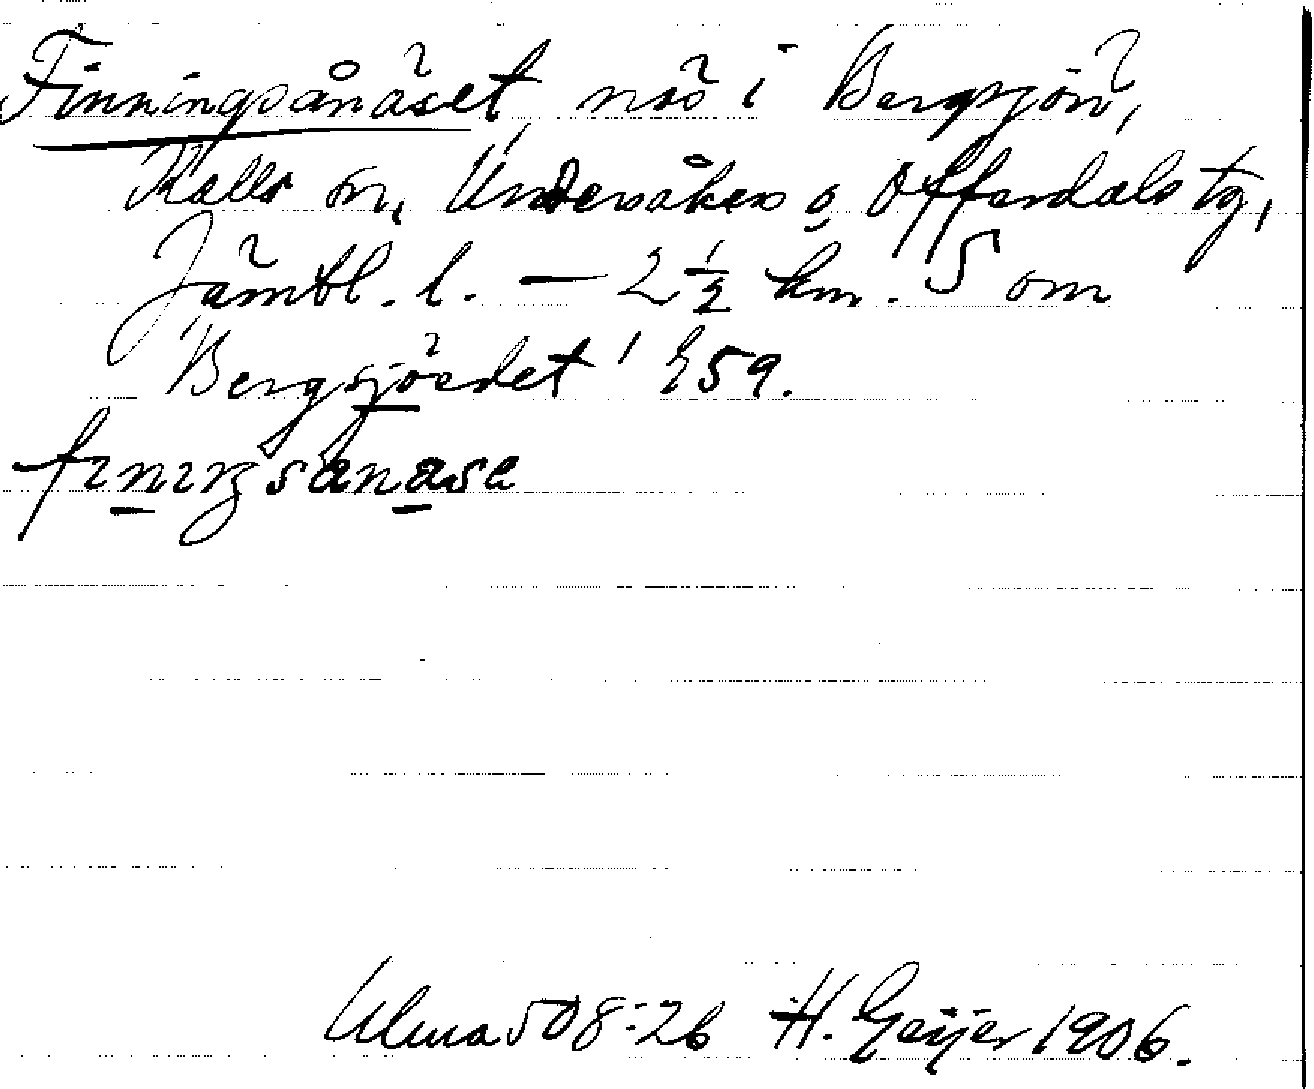 Finningsånäset, näs i Bergsjön,
Kalls sn, Undersåkers o Offerdals tg,
Jämtl. l. — 2 1/2 km. S om
Bergsjöedet' E59.
Ulma 508:26 H. Geijer 1906.